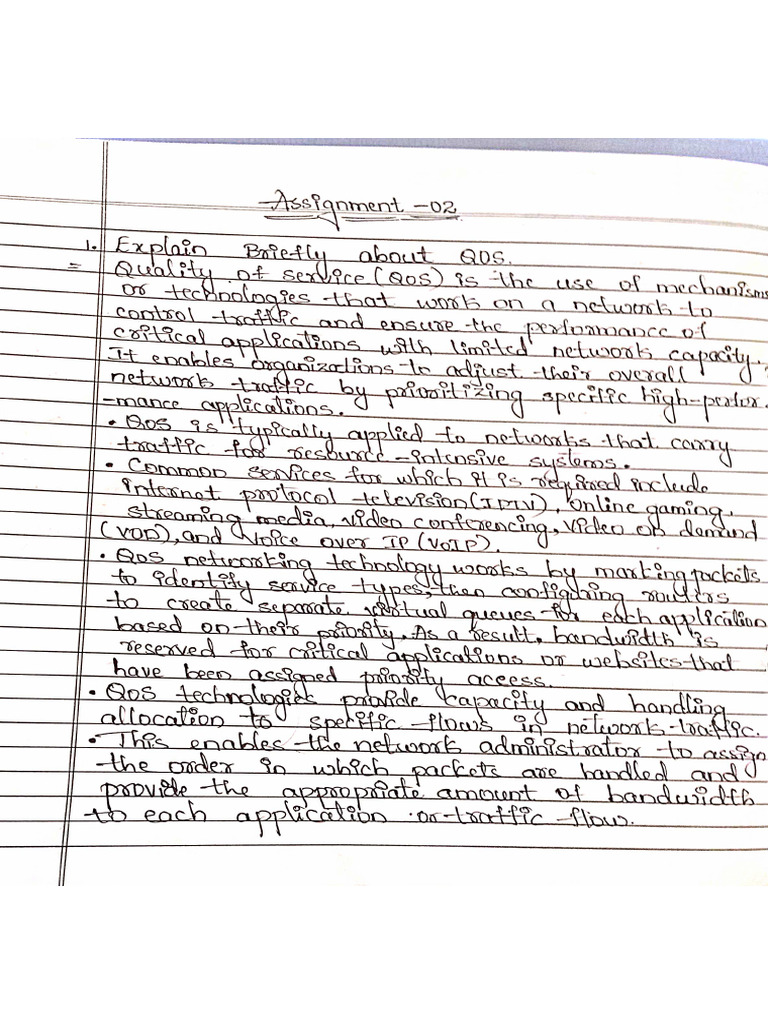 Assignment -02
1. Explain Briefly about QOS.
= Quality of service (QoS) is the use of mechanisms
or technologies that work on a network to
control traffic and ensure the performance of
critical applications with limited network capacity.
It enables organizations to adjust their overall
network traffic by prioritizing specific high-perfor
-mance applications.
• QoS is typically applied to networks that carry
traffic for resource-intensive systems.
• Common services for which it is required include
internet protocol television (IPTV), online gaming,
streaming media, video conferencing, video on demand
(VOD), and Voice over IP (VoIP).
• QoS networking technology works by marking packets
to identify service types, then configuring routers
to create separate virtual queues for each application
based on their priority. As a result, bandwidth is
reserved for critical applications or websites that
have been assigned priority access.
• QoS technologies provide capacity and handling
allocation to specific flows in network traffic.
• This enables the network administrator to assign
the order in which packets are handled and
provide the appropriate amount of bandwidth
to each application or traffic flow.